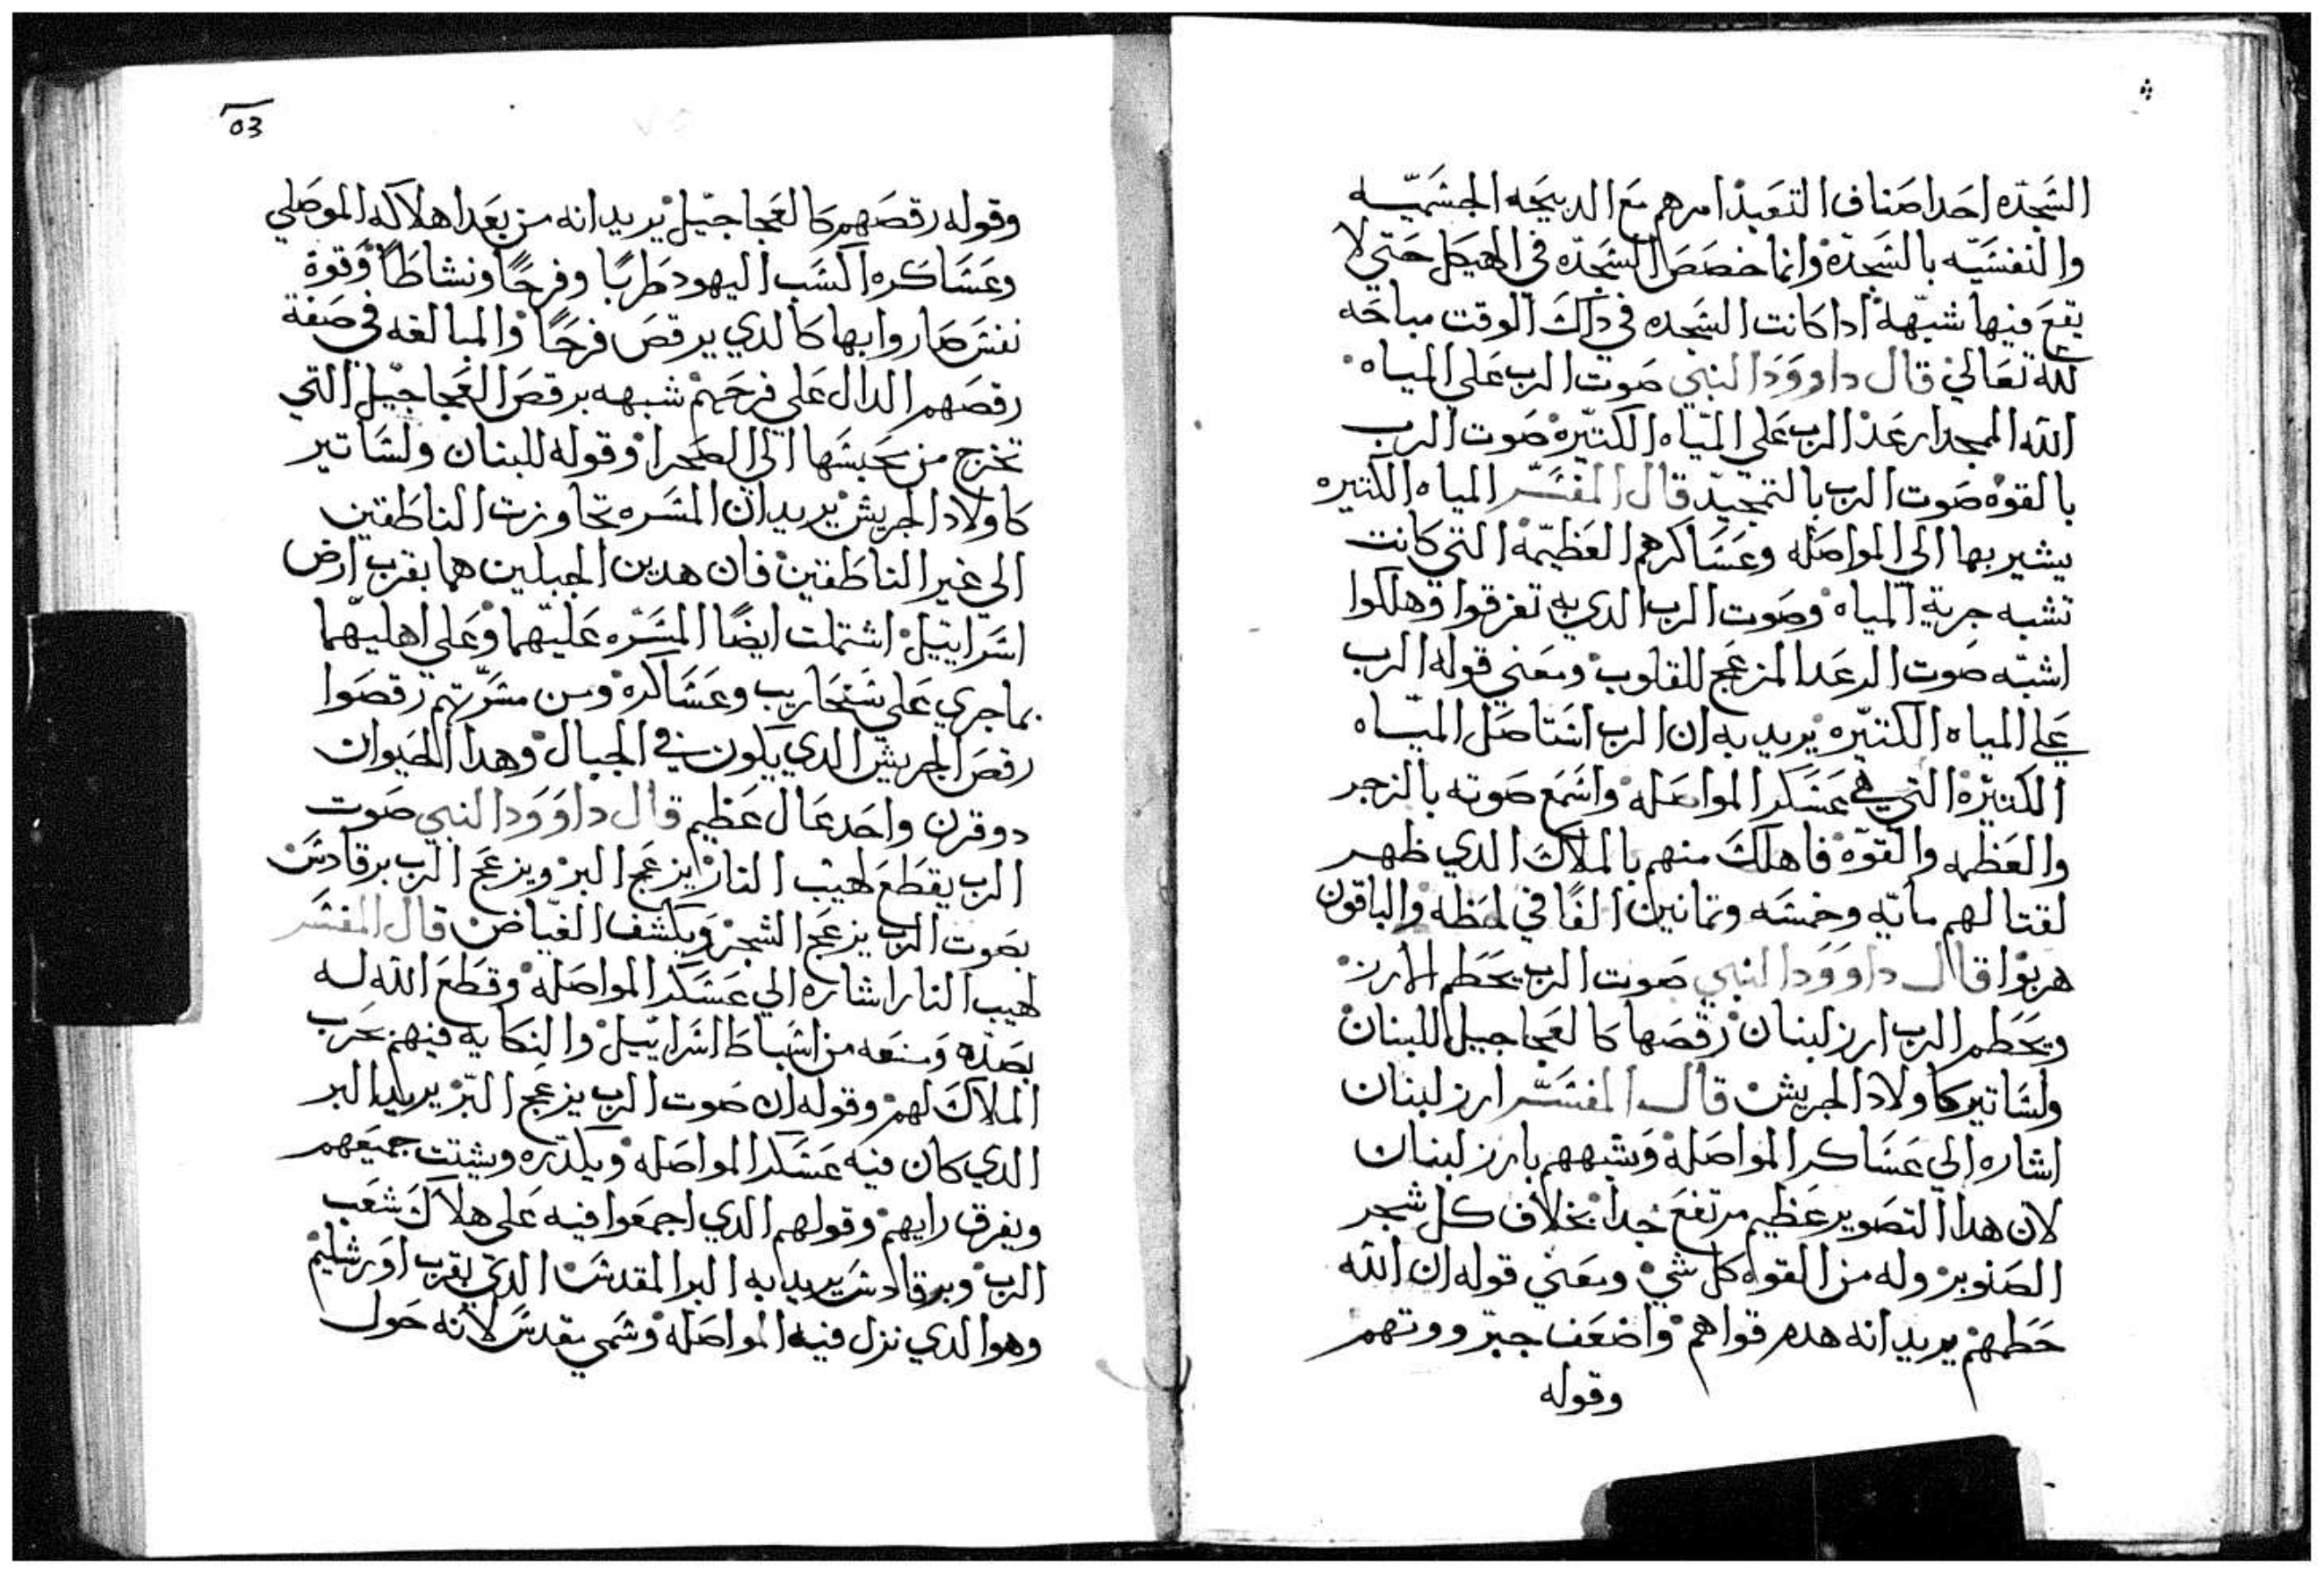 السَجدّه احَد اصَناف التعَبد امرهم مَع الدبيحَه الجسَميّه
والنفسَيّه بالسَجدّه وانما خصَصَ السَجدّه في الهيكل حَتي لا
يقعَ فيها شبّهه ادا كانت السَجده في داك الوقت مباحَه
لله تعَالي قال داووَد النبي صَوت الرب عَلي المياه
الله الممجد ارعَد الرب عَلي المياه الكتيره صَوت الرب
بالقوه صَوت الرب بالتمجيّد قال المفسَر المياه الكتيره
يشير بها الي المواصَله وعَسَاكرهم العَظيمّه التي كانت
تشبه جرية المياه وصَوت الرب الدي به تفرقوا وهلكوا
اشبّه صَوت الرعَد المزعَج للقلوب ومعَني قوله الرب
عَلي المياه الكتيّره يريد به ان الرب استاصَل الميّاه
الكتيره التي هي عَسَكر المواصَله واسَمَع صَوته بالزجر
والعَظمه والقوّه فاهلك منهم بالملاك الدي ظهر
لقتالهم مايّه وخمسَه وتمانين الفًا في لحَظه والباقون
هربوا قال داوَوَد النبي صَوت الرب يحَطم الارز
ويحَطم الرب ارز لبنان رقصَها كالعَجاجيل للبنان
ولسَاتير كاولاد الجريش قال المفسَر ارز لبنان
اشاره الي عَسَاكر المواصَله وَشبههم بارز لبنان
لان هدا التصَوير عَظيم مرتفعَ جدا بخلاف كل شجر
الصَنوبر وله من القوه كل شي ومعَني قوله ان الله
حَطمهم يريد انه هدم قواهم واضعَف جبرووتهم
وقوله
03
وقوله رقصَهم كالعَجاجيّل يريد انه من بعَد اهلاكه الموصَلي
وعَسَاكره اكسَب اليهود طربًا وفرحًا ونشاطًا وقوة
نفسَ صَاروا بها كالدي يرقصَ فرحًا والمبالغه في صَفة
رقصَهم الدال عَلي فرحَهم شبهه برقصَ العَجاجيّل التي
تخرج من محَبسَها الي الصَحرا وقوله للبنان ولسَاتير
كاولاد الجريش يريد ان المسَره تجاوزت الناطَقين
الي غير الناطَقين فان هدين الجبلين هما بقرب ارض
اسَراييّل اشتملت ايضًا المسَرّه عَليّهما وعَلي اهليهما
بما جري عَلي سَنحَاريب وعَسَاكره ومن مسَرّتهم رقصَوا
رقصَ الجريش الدي يكون في الجبال وهدا الحَيوان
دو قرن واحَد عَال عَظيم قال داوَوَد النبي صَوت
الرب يقطَعَ لهيب النار يزعَج البر ويزعَج الرب برقادسَ
بصَوت الرب يزعَج الشجر وَيكشف الغيّاض قال المفسَر
لهيب النار اشاره الي عَسَكر المواصَله وقطَعَ الله له
بصَدّه وَمنعَه من اسَباطَ اسَراييّل والنكايه فيهم بحَرب
الملاك لهم وقوله ان صَوت الرب يزعَج البّر يريد البر
الدي كان فيه عَسَكر المواصَله ويكدّره ويشتت جميعَهم
ويفرق رايهم وقولهم الدي اجمعَوا فيه عَلي هلاك شعَب
الرب وبرقادسَ يريد به البر المقدسَ الدي بقرب اوَرشليم
وهو الدي نزل فيه المواصَله وسَمي بقدسَ لانه حَول